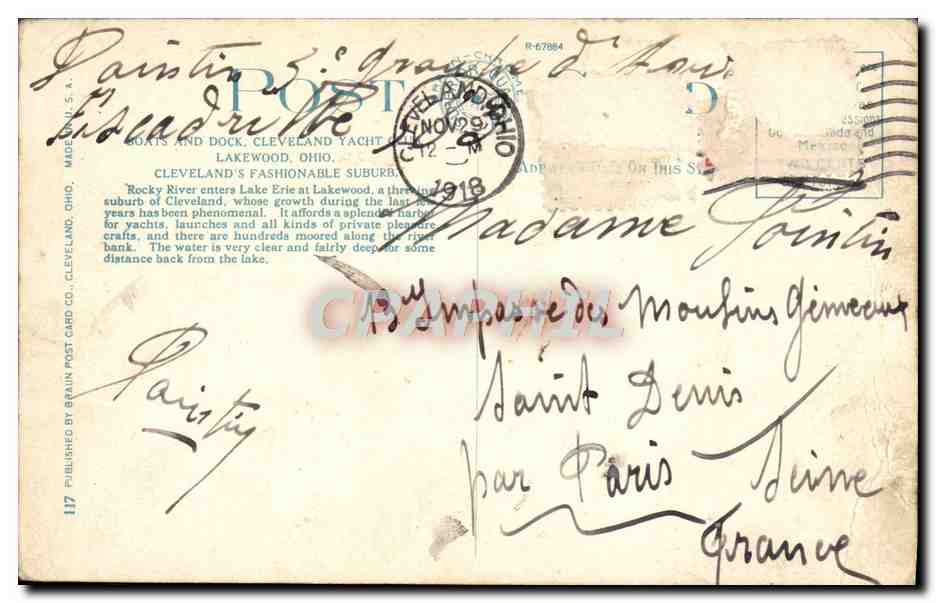 R-67884
Pointin 5e groupe d'
Escadrille
POST
CLEVELAND, OHIO
NOV 29
12 M
1918
BOATS AND DOCK, CLEVELAND YACHT
LAKEWOOD, OHIO.
CLEVELAND'S FASHIONABLE SUBURB.
Rocky River enters Lake Erie at Lakewood, a thriving
suburb of Cleveland, whose growth during the last few
years has been phenomenal. It affords a splendid harbor
for yachts, launches and all kinds of private pleasure
crafts, and there are hundreds moored along the river
bank. The water is very clear and fairly deep for some
distance back from the lake.
ON THIS
Madame Pointin
13 Impasse des Moulins Gémeaux
Saint Denis
par Paris Seine
France
Pointin
CPARAMA
117 PUBLISHED BY BRAUN POST CARD CO., CLEVELAND, OHIO, MADE IN U.S.A.